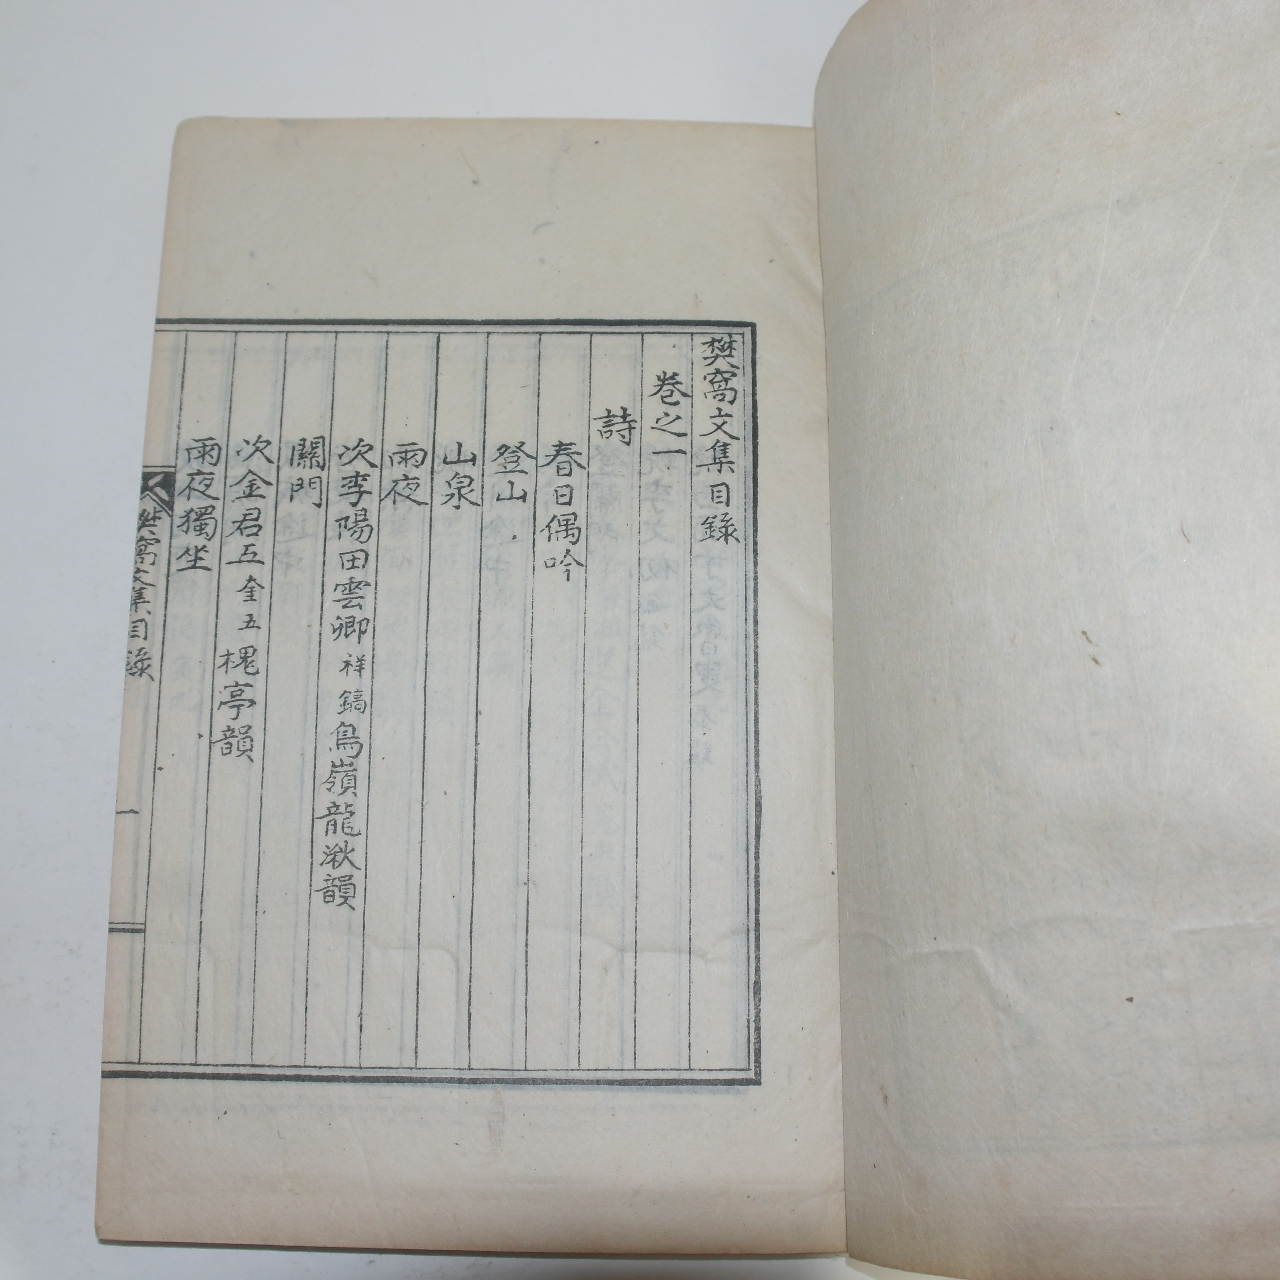 樊窩文集目錄
卷之一
詩
春日偶吟
登山
山泉
雨夜
次李陽田雲卿祥鎬鳥嶺龍湫韻
關門
次金君五奎五槐亭韻
雨夜獨坐
樊窩文集目錄 一